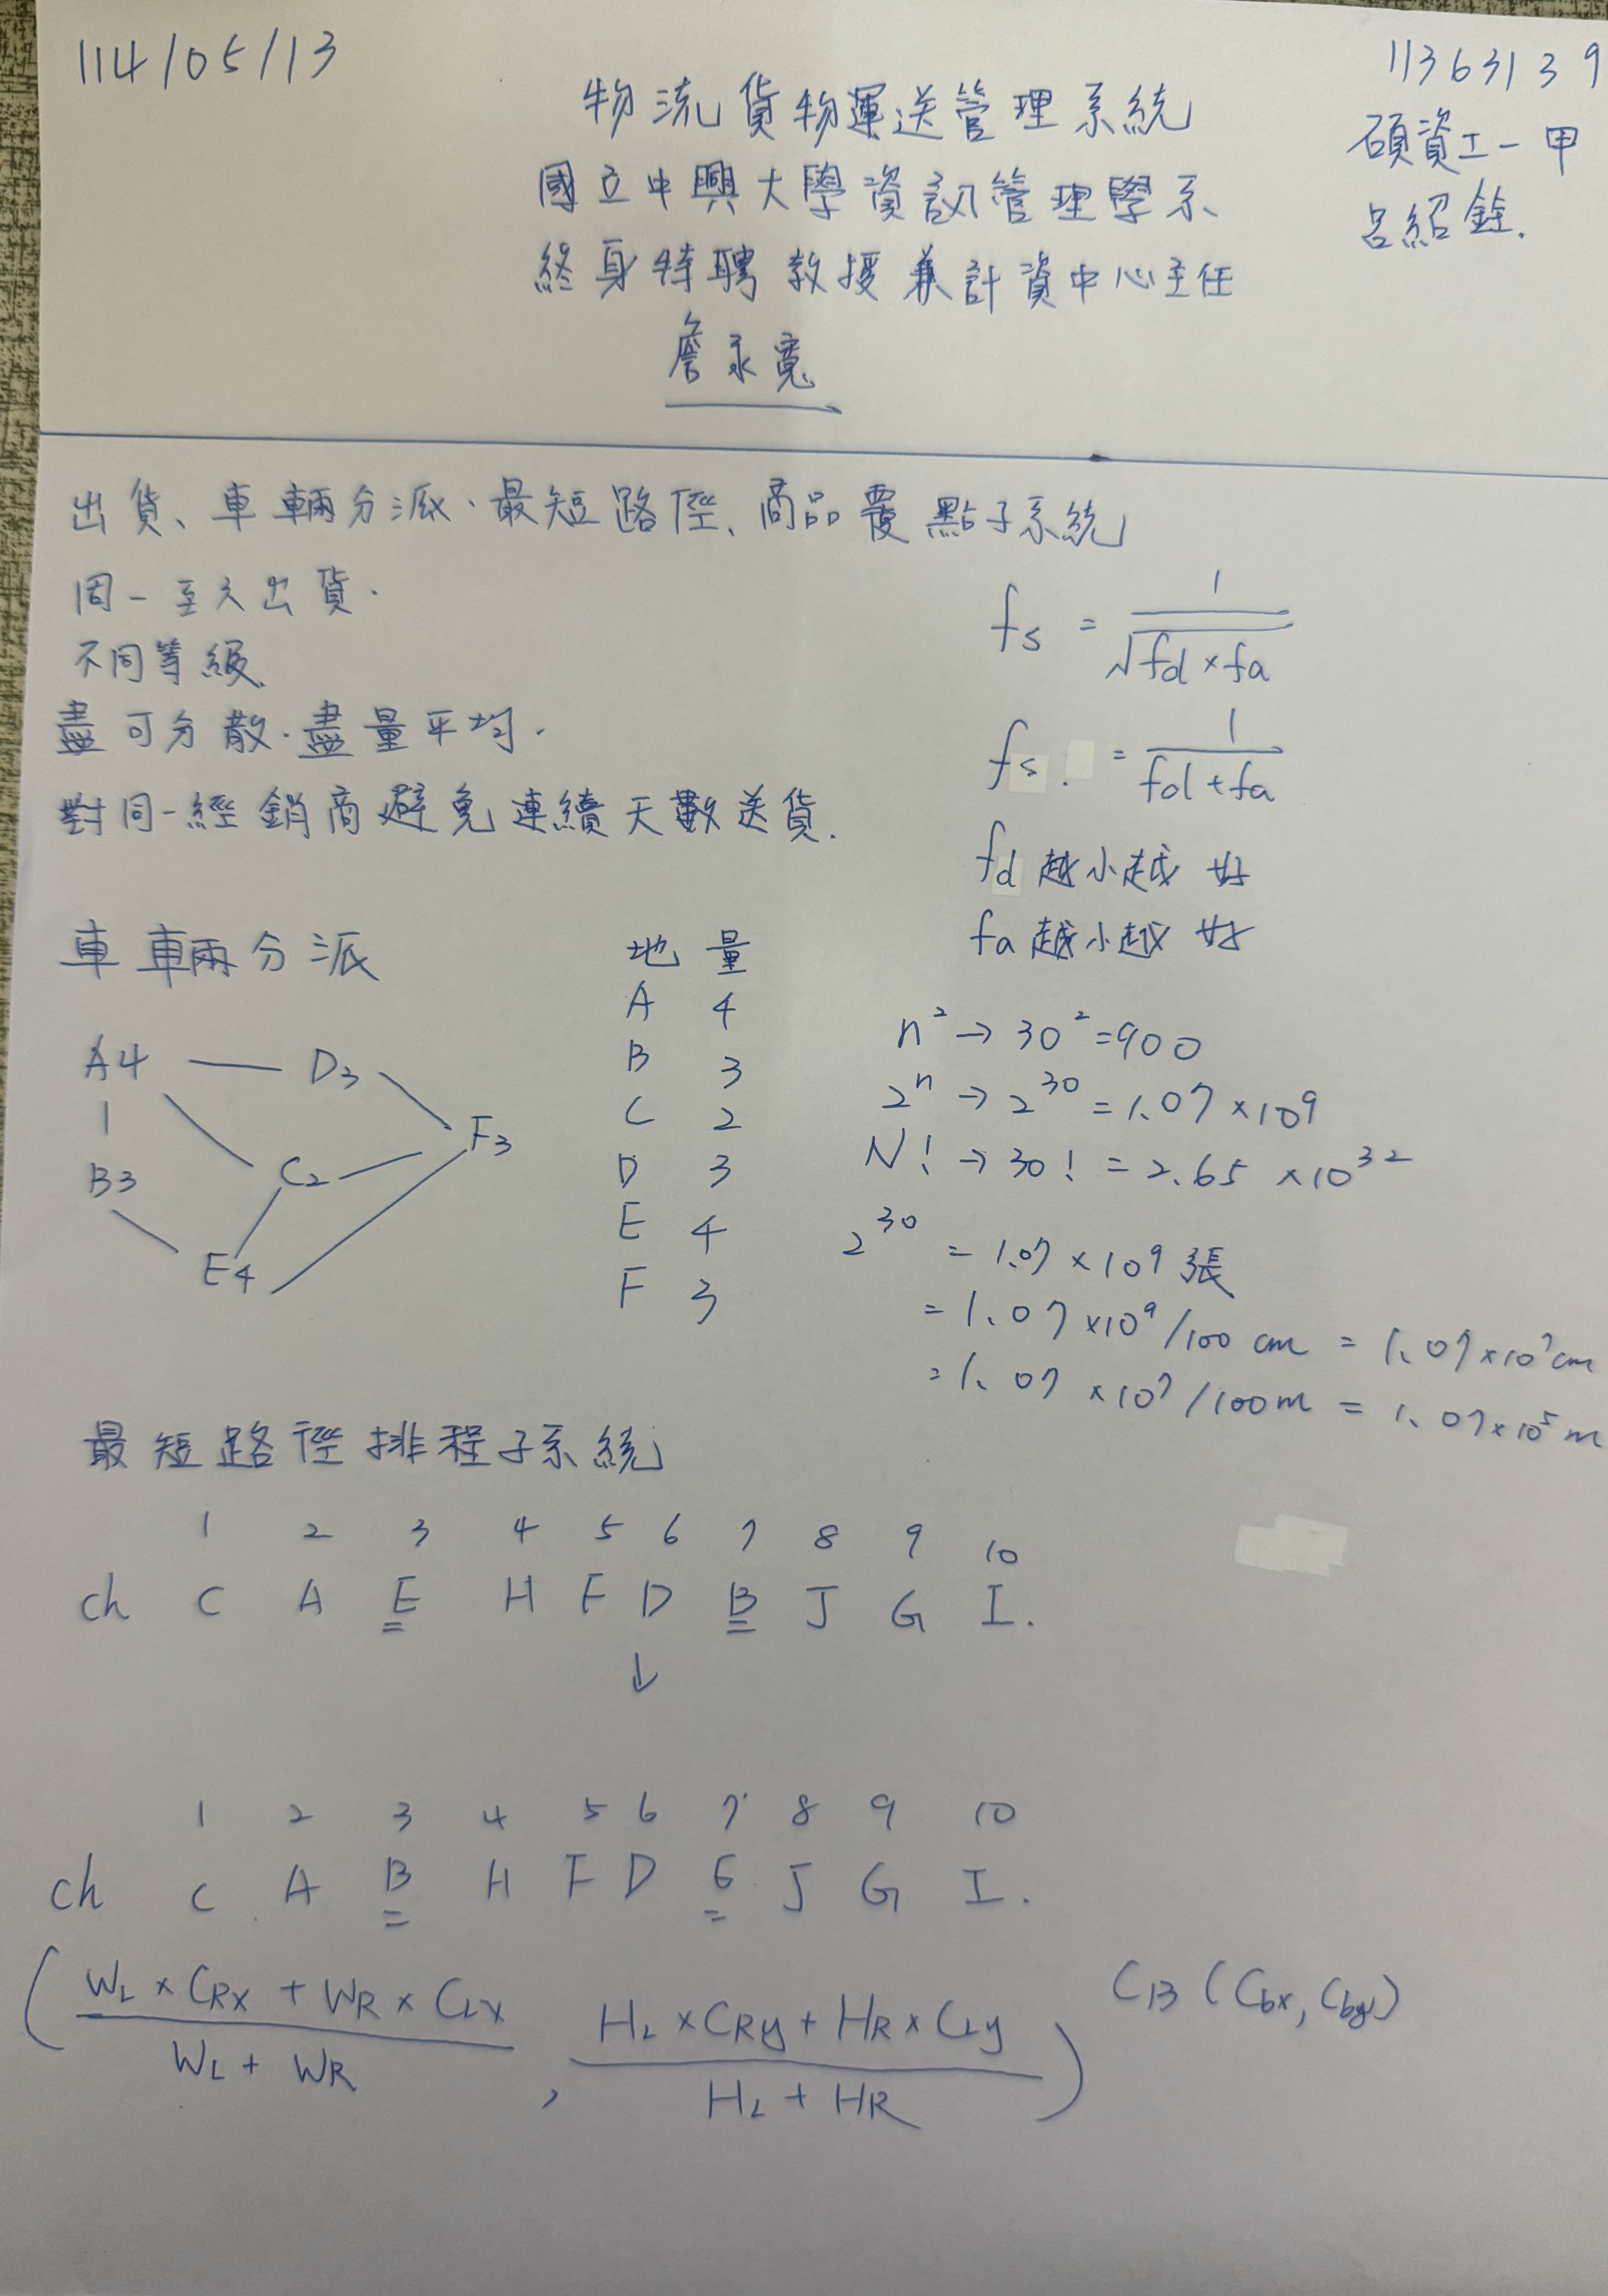 114/05/13
11363139
碩資工一甲
呂紹銓.
物流貨物運送管理系統
國立中興大學資訊管理學系
終身特聘教授兼計資中心主任
詹永寬
出貨、車輛分派、最短路徑、商品覆點子系統
同一天出貨.
不同等級
盡可分散.盡量平均.
對同一經銷商避免連續天數送貨.
fs = 1 / √fd × fa
fs. = 1 / fd + fa
fd 越小越好
fa 越小越好
車輛分派
A4 D3
F3
B3 C2
E4
地 量
A 4
B 3
C 2
D 3
E 4
F 3
n² → 30² = 900
2ⁿ → 2³⁰ = 1.07 × 10⁹
N! → 30! = 2.65 × 10³²
2³⁰ = 1.07 × 10⁹ 張
= 1.07 × 10⁹/100 cm = 1.07 × 10⁷ cm
= 1.07 × 10⁷/100 m = 1.07 × 10⁵ m
最短路徑排程子系統
1 2 3 4 5 6 7 8 9 10
ch C A E H F D B J G I.
↓
1 2 3 4 5 6 7 8 9 10
ch C A B H F D E J G I.
( WL × CRx + WR × CLx / WL + WR , HL × CRy + HR × CLy / HL + HR ) CB (Cbx, Cby)